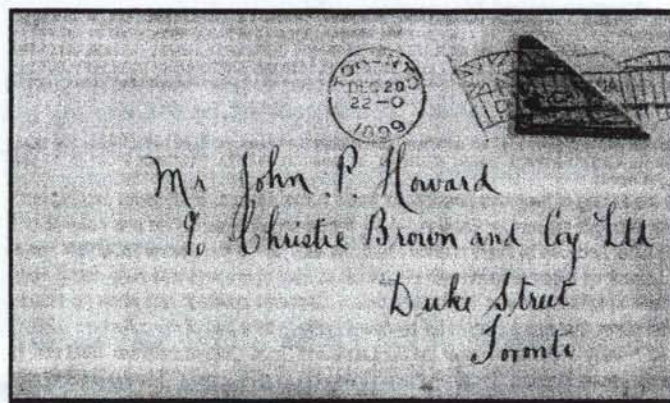 TORONTO
DEC 20
22-0
1899
Mr John. P. Howard
c/o Christie Brown and Coy Ltd
Duke Street
Toronto